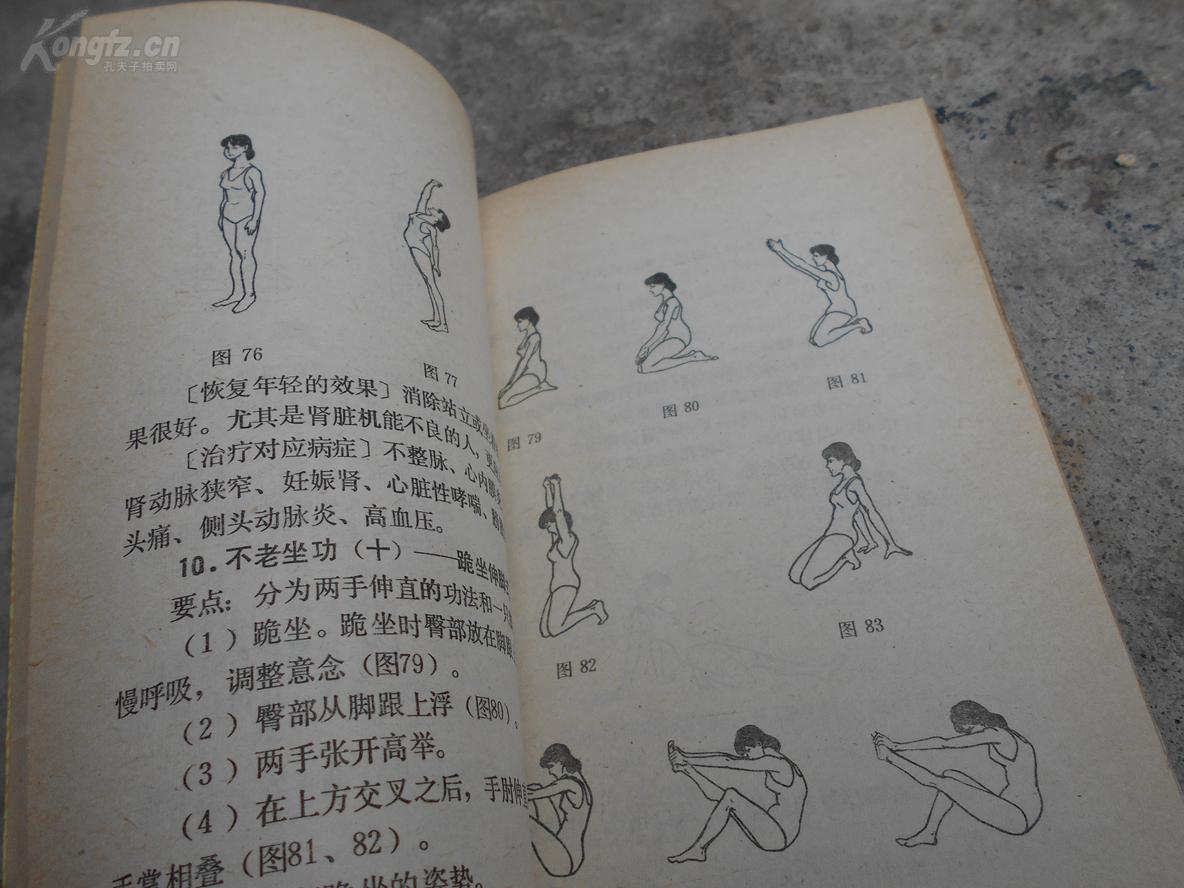 Kongfz.cn
孔夫子拍卖网
图 76
图 77
〔恢复年轻的效果〕消除站立或坐
果很好。尤其是肾脏机能不良的人，更
〔治疗对应病症〕不整脉、心内膜
肾动脉狭窄、妊娠肾、心脏性哮喘、
头痛、侧头动脉炎、高血压。
10.不老坐功（十）——跪坐伸脚
要点：分为两手伸直的功法和一只
（1）跪坐。跪坐时臀部放在脚跟
慢呼吸，调整意念（图79）。
（2）臀部从脚跟上浮（图80）。
（3）两手张开高举。
（4）在上方交叉之后，手肘伸直
手掌相叠（图81、82）。
跪坐的姿势。
图 79
图 80
图 81
图 82
图 83